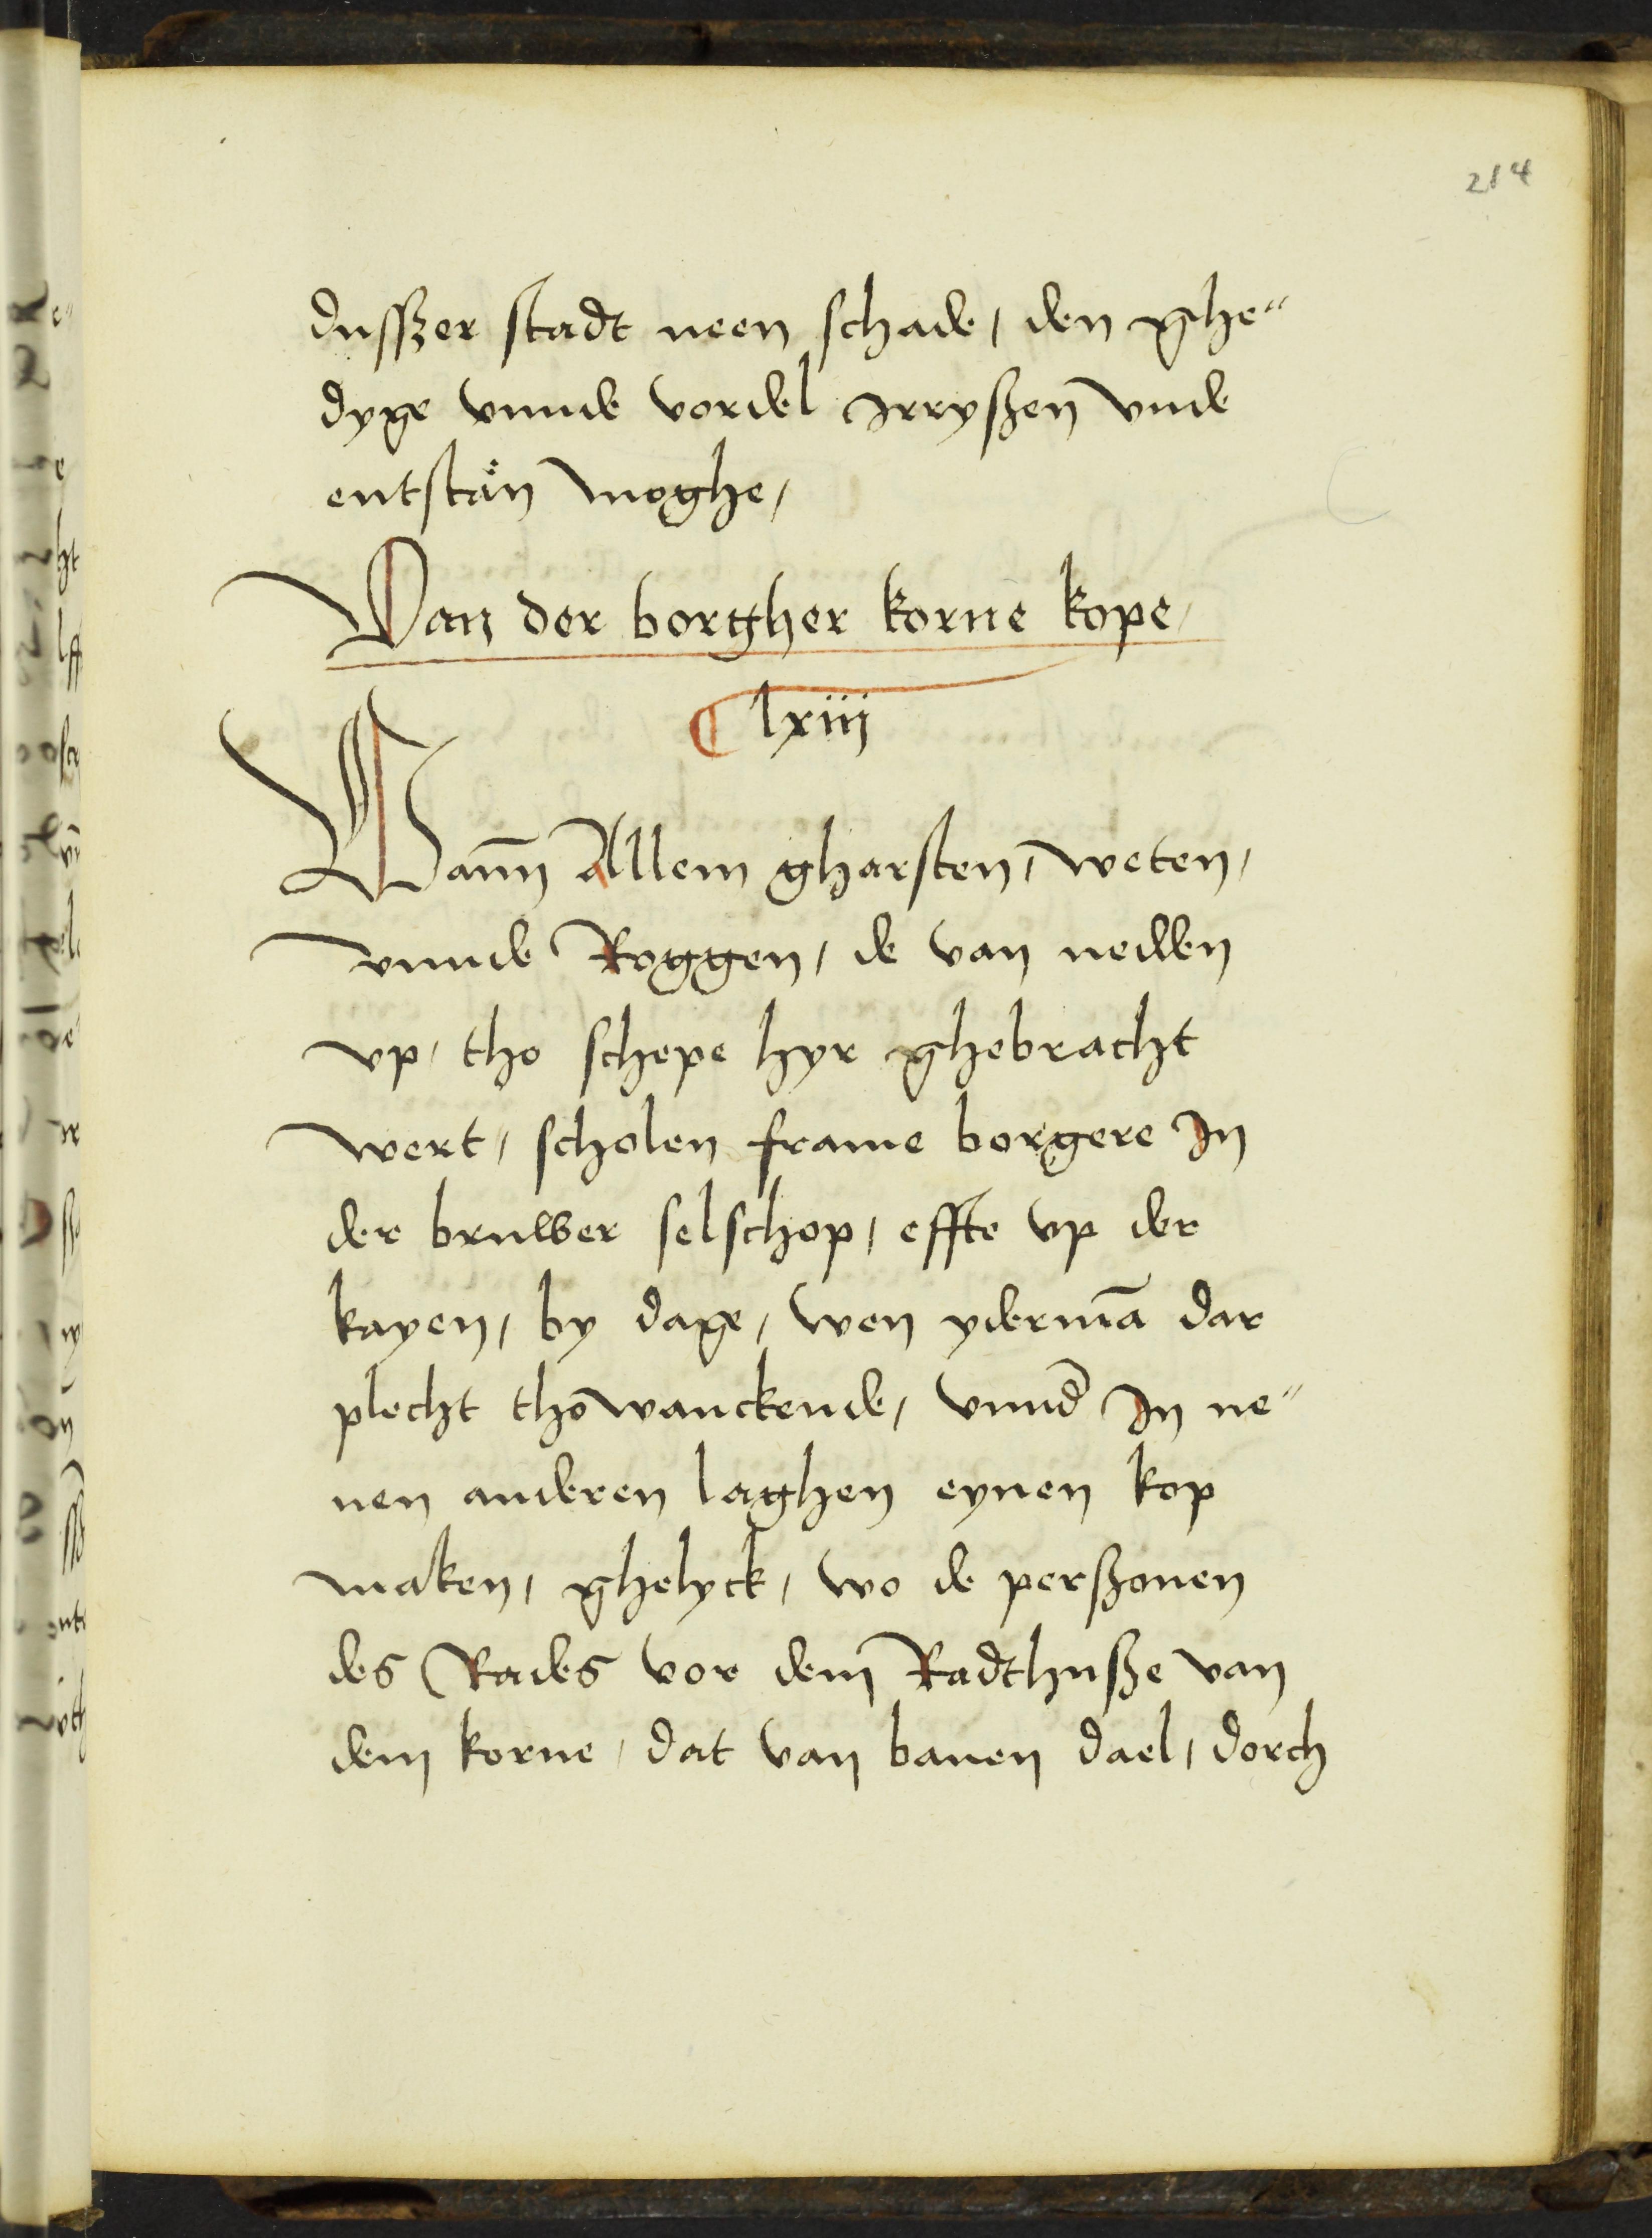 214
dusszer stadt neen schade, den ghe"
dyge vnnde vordel Irryszen vnde
entstån moghe,
Van der borgher korne kope,
lxiii
Vann Allem gharsten, weten,
vnnde Roggen, de van nedden
vp, tho schepe hyr ghebracht
wert, scholen frame borgere In
der bruwer selschop, effte vp der
kayen, by dage, wen ydermā dar
plecht tho wanckende, vnnd In ne"
nen anderen laghen eynen kop
maken, ghelyck, wo de perszonen
des Rades vor dem Radthusze van
dem korne, dat van bauen dael, dorch